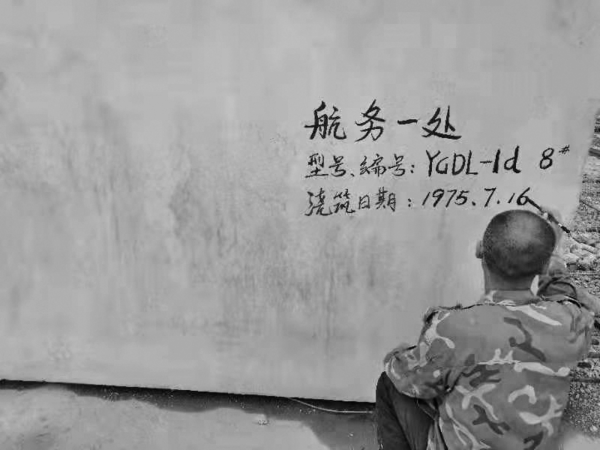 航务一处
型号、编号：YGDL-1d 8#
浇筑日期：1975.7.16